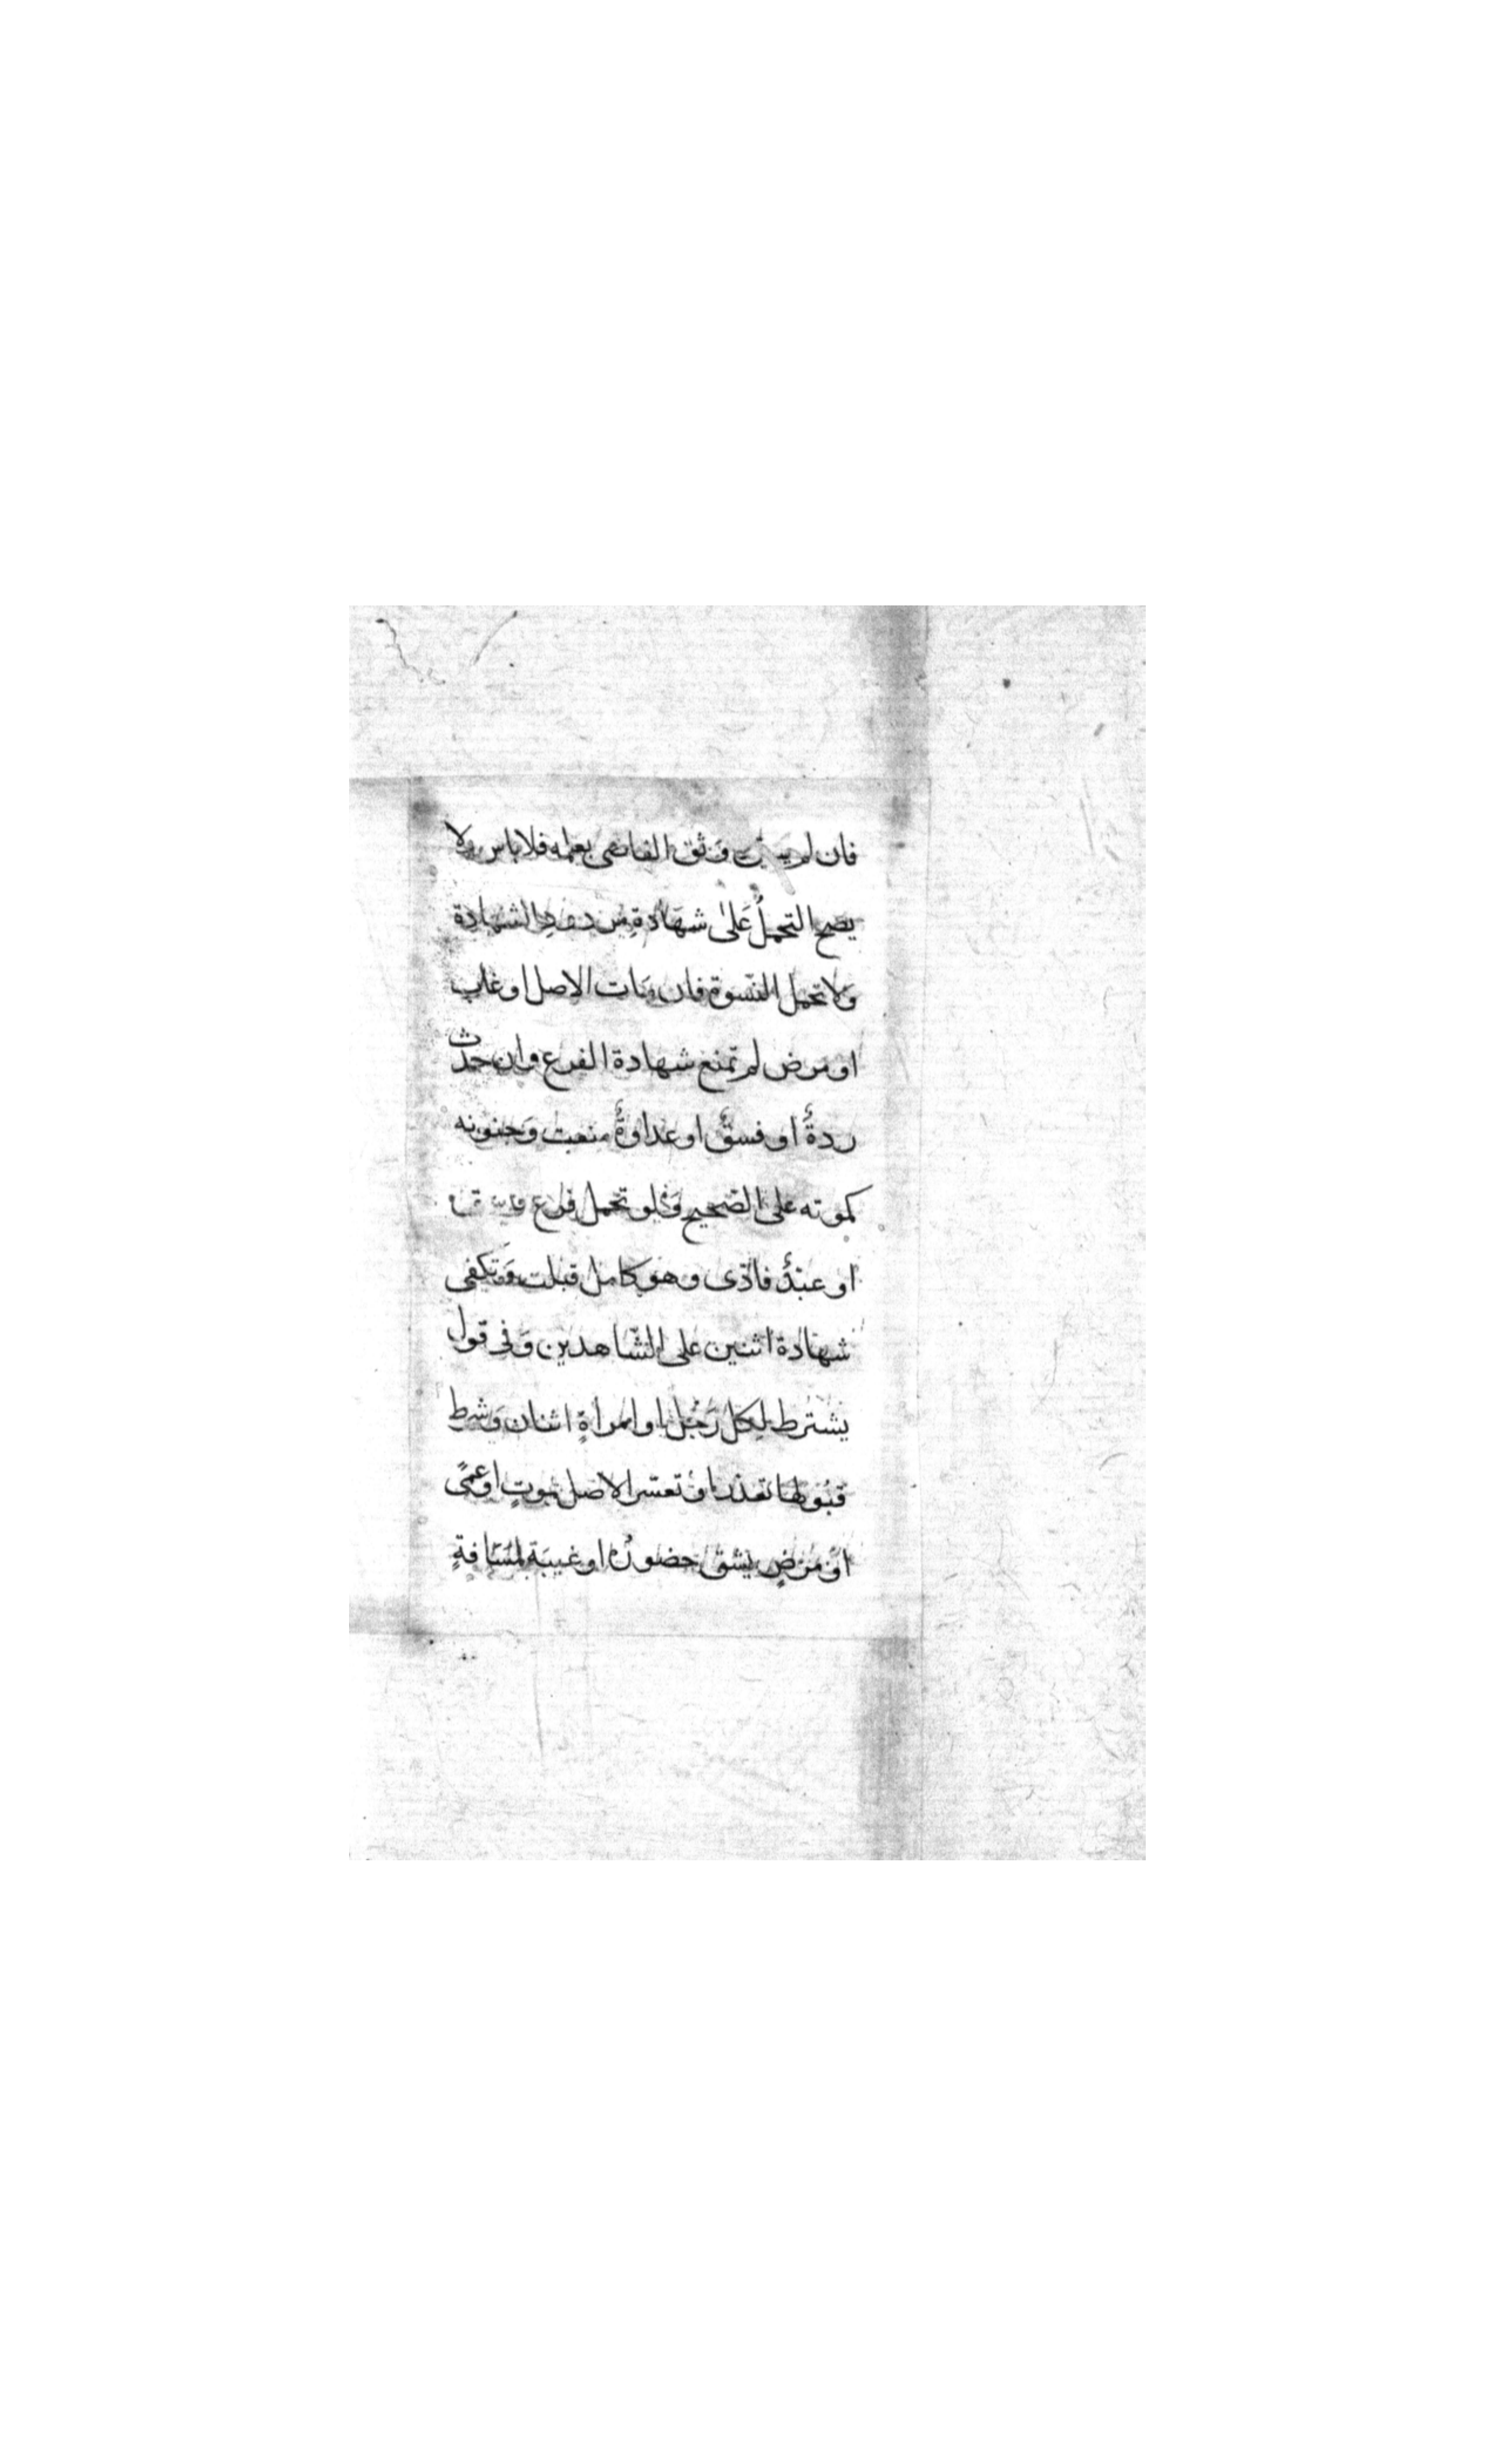 فان لم يبين وَثق القاضى بعلمه فلا باس ولا
يصح التحملُ عَلى شهَادةِ مردودِ الشهادة
وَلا تحمل النّسوة فان مَات الاصل او غاب
او مرض لم تمنع شهادة الفرع وان حدث
ردةٌ او فسقٌ او عداوةٌ منعت وَجنونه
كموته على الصّحيح وَلو تحمل فرع فاسق
او عبدٌ فادّى وهو كامل قبلت وَتكفى
شهادة اثنين على الشّاهدين وَفى قول
يشترط لكل رَجُل او امراةٍ اثنان وَشرط
قبُولها تعذر او تعسّر الاصل بموتٍ او عمًى
اوْ مرَضٍ يشق حضورُه او غيبَة لمسَافةٍ